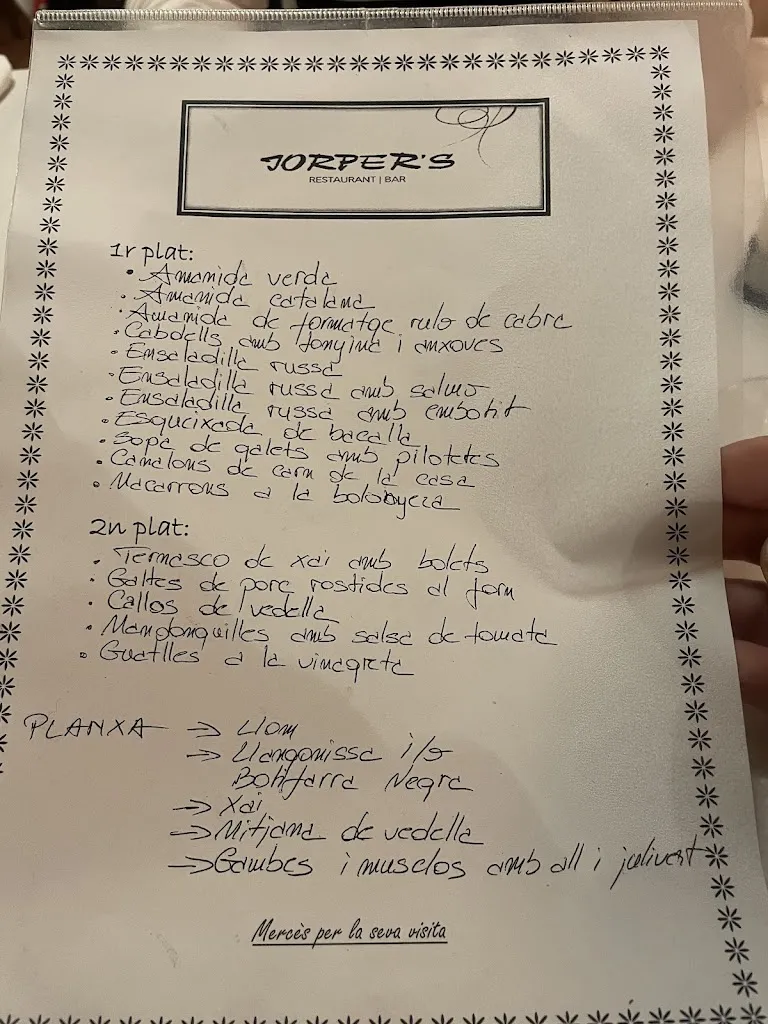 JORPER'S
RESTAURANT | BAR
1r plat:
• Amanida verda
• Amanida catalana
• Amanida de formatge rulo de cabra
• Cabdells amb tonyina i anxoves
• Ensaladilla russa
• Ensaladilla russa amb salmó
• Ensaladilla russa amb embotit
• Esqueixada de bacallà
• Sopa de galets amb pilotetes
• Canalons de carn de la casa
• Macarrons a la bolonyesa
2n plat:
• Ternasco de xai amb bolets
• Galtes de porc rostides al forn
• Callos de vedella
• Mandonguilles amb salsa de tomate
• Guatlles a la vinagreta
PLANXA → Llom
→ Llangonissa i/o
Botifarra Negra
→ Xai
→ Mitjana de vedella
→ Gambes i musclos amb all i julivert
Mercès per la seva visita